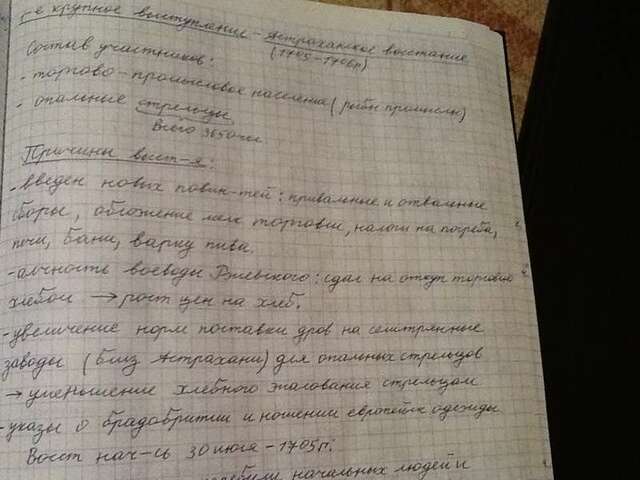 1-е крупное выступление - Астраханское восстание
(1705-1706г)
Состав участников:
- торгово-промысловое население (рыбн промыслы)
- опальные стрельцы
Всего 3650 чел
Причины выст-я:
- введен новых повин-тей: привальные и отвальные
сборы, обложение мелк торговли, налоги на погреба,
печи, бани, варку пива.
- алчность воеводы Ржевского: сдал на откуп торговлю
хлебом → рост цен на хлеб.
- увеличение норм поставки дров на селитряные
заводы (близ Астрахани) для опальных стрельцов
→ уменьшение хлебного жалования стрельцам
- указы о брадобритии и ношении европейск одежды
Восст нач-сь 30 июля - 1705г:
начальных людей и